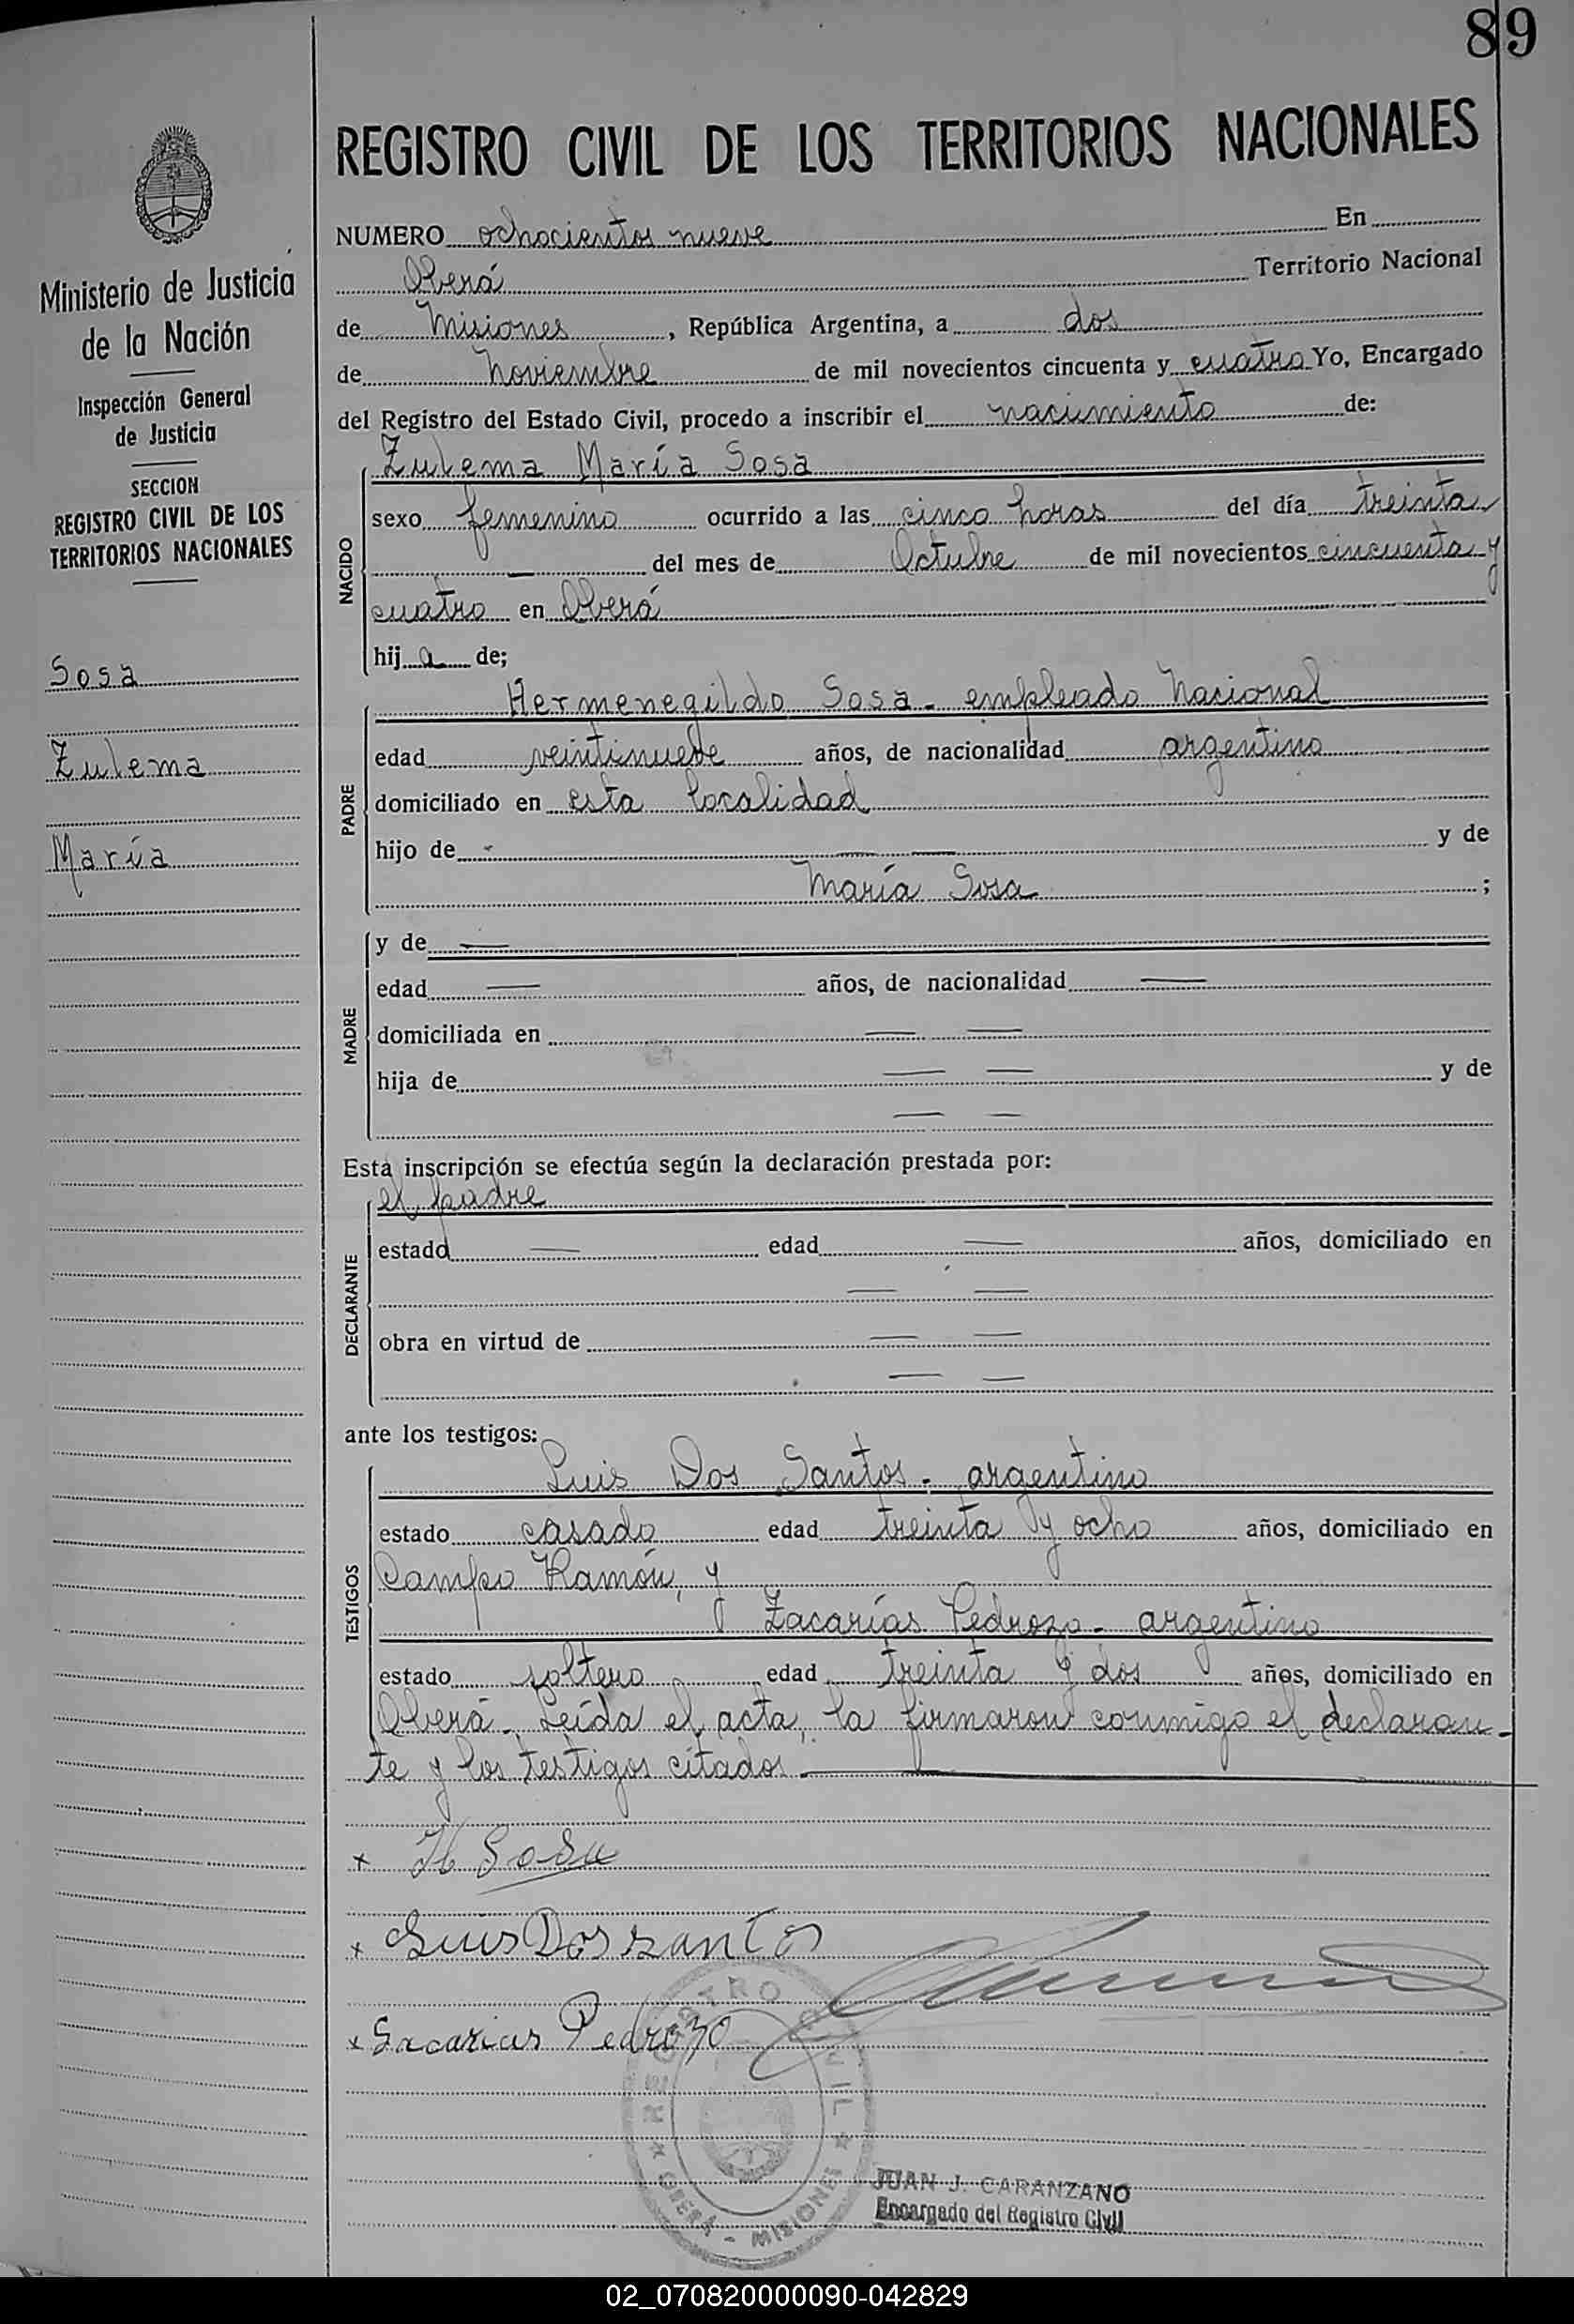 89
REGISTRO CIVIL DE LOS TERRITORIOS NACIONALES
Ministerio de Justicia
de la Nación
Inspección General
de Justicia
SECCION
REGISTRO CIVIL DE LOS
TERRITORIOS NACIONALES
Sosa
Zulema
María
NUMERO ochocientos nueve En
Oberá Territorio Nacional
de Misiones, República Argentina, a dos
de Noviembre de mil novecientos cincuenta y cuatro Yo, Encargado
del Registro del Estado Civil, procedo a inscribir el nacimiento de:
NACIDO
Zulema María Sosa
sexo femenino ocurrido a las cinco horas del día treinta
— del mes de Octubre de mil novecientos cincuenta y
cuatro en Oberá
hij a de;
PADRE
Hermenegildo Sosa - empleado Nacional
edad veintinueve años, de nacionalidad argentino
domiciliado en esta localidad
hijo de - — — y de
María Sosa ;
MADRE
y de —
edad — años, de nacionalidad —
domiciliada en — —
hija de — — y de
— —
Esta inscripción se efectúa según la declaración prestada por:
DECLARANTE
el padre
estado — edad — años, domiciliado en
— —
obra en virtud de — —
— —
ante los testigos:
TESTIGOS
Luis Dos Santos - argentino
estado casado edad treinta y ocho años, domiciliado en
Campo Ramón, y
Zacarías Pedrozo - argentino
estado soltero edad treinta y dos años, domiciliado en
Oberá - Leída el acta, la firmaron conmigo el declaran-
te y los testigos citados —
x H Sosa
x Luis Dos Santos
x Sacarias Pedrozo
REGISTRO CIVIL
OBERÁ - MISIONES
JUAN J. CARANZANO
Encargado del Registro Civil
02_070820000090-042829